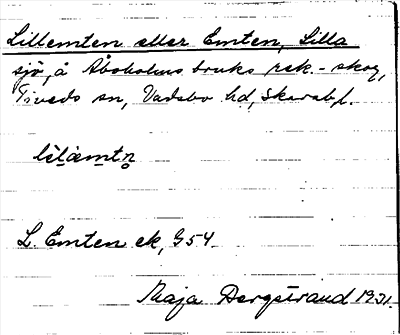 Lillemten eller Emten, Lilla
sjö, å Åboholms bruks rek.-skog,
Tiveds sn, Vadsbo hd, Skarab.l.
L. Emten ek, G54.
Maja Bergstrand 1931.